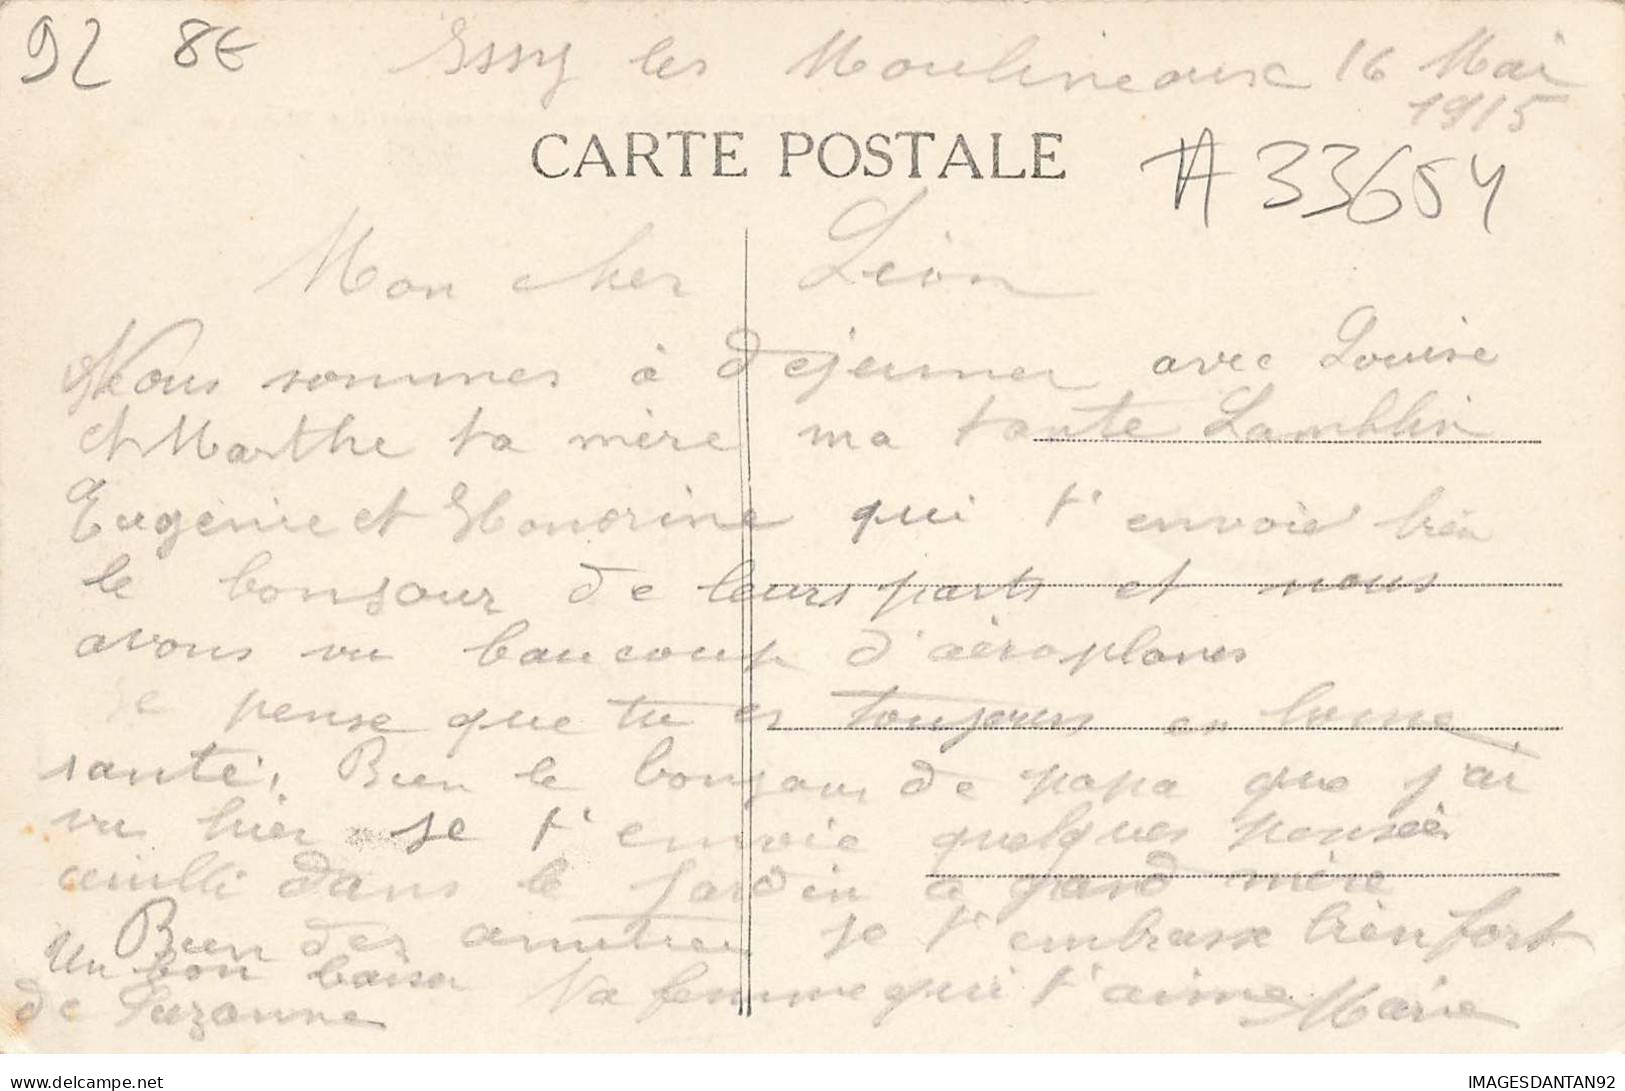 92 8€ Issy les Moulineaux 16 Mai
1915
CARTE POSTALE
A 33654
Mon cher Léon
Nous sommes à dejeuner avec Louise
et Marthe ta mère ma tante Lamblin
Eugenie et Honorine qui t'envoie bien
le bonjour de leurs parts et nous
avons vu beaucoup d'aéroplanes
Je pense que tu es toujours en bonne
santé. Bien le bonjour de papa que j'ai
vu hier je t'envoie quelques pensées
cueilli dans le jardin a grand mère
Bien des amitiés je t'embrasse bien fort
Un bon baiser Ta femme qui t'aime Marie
de Suzanne
IMAGESDANTAN92
delcampe.net